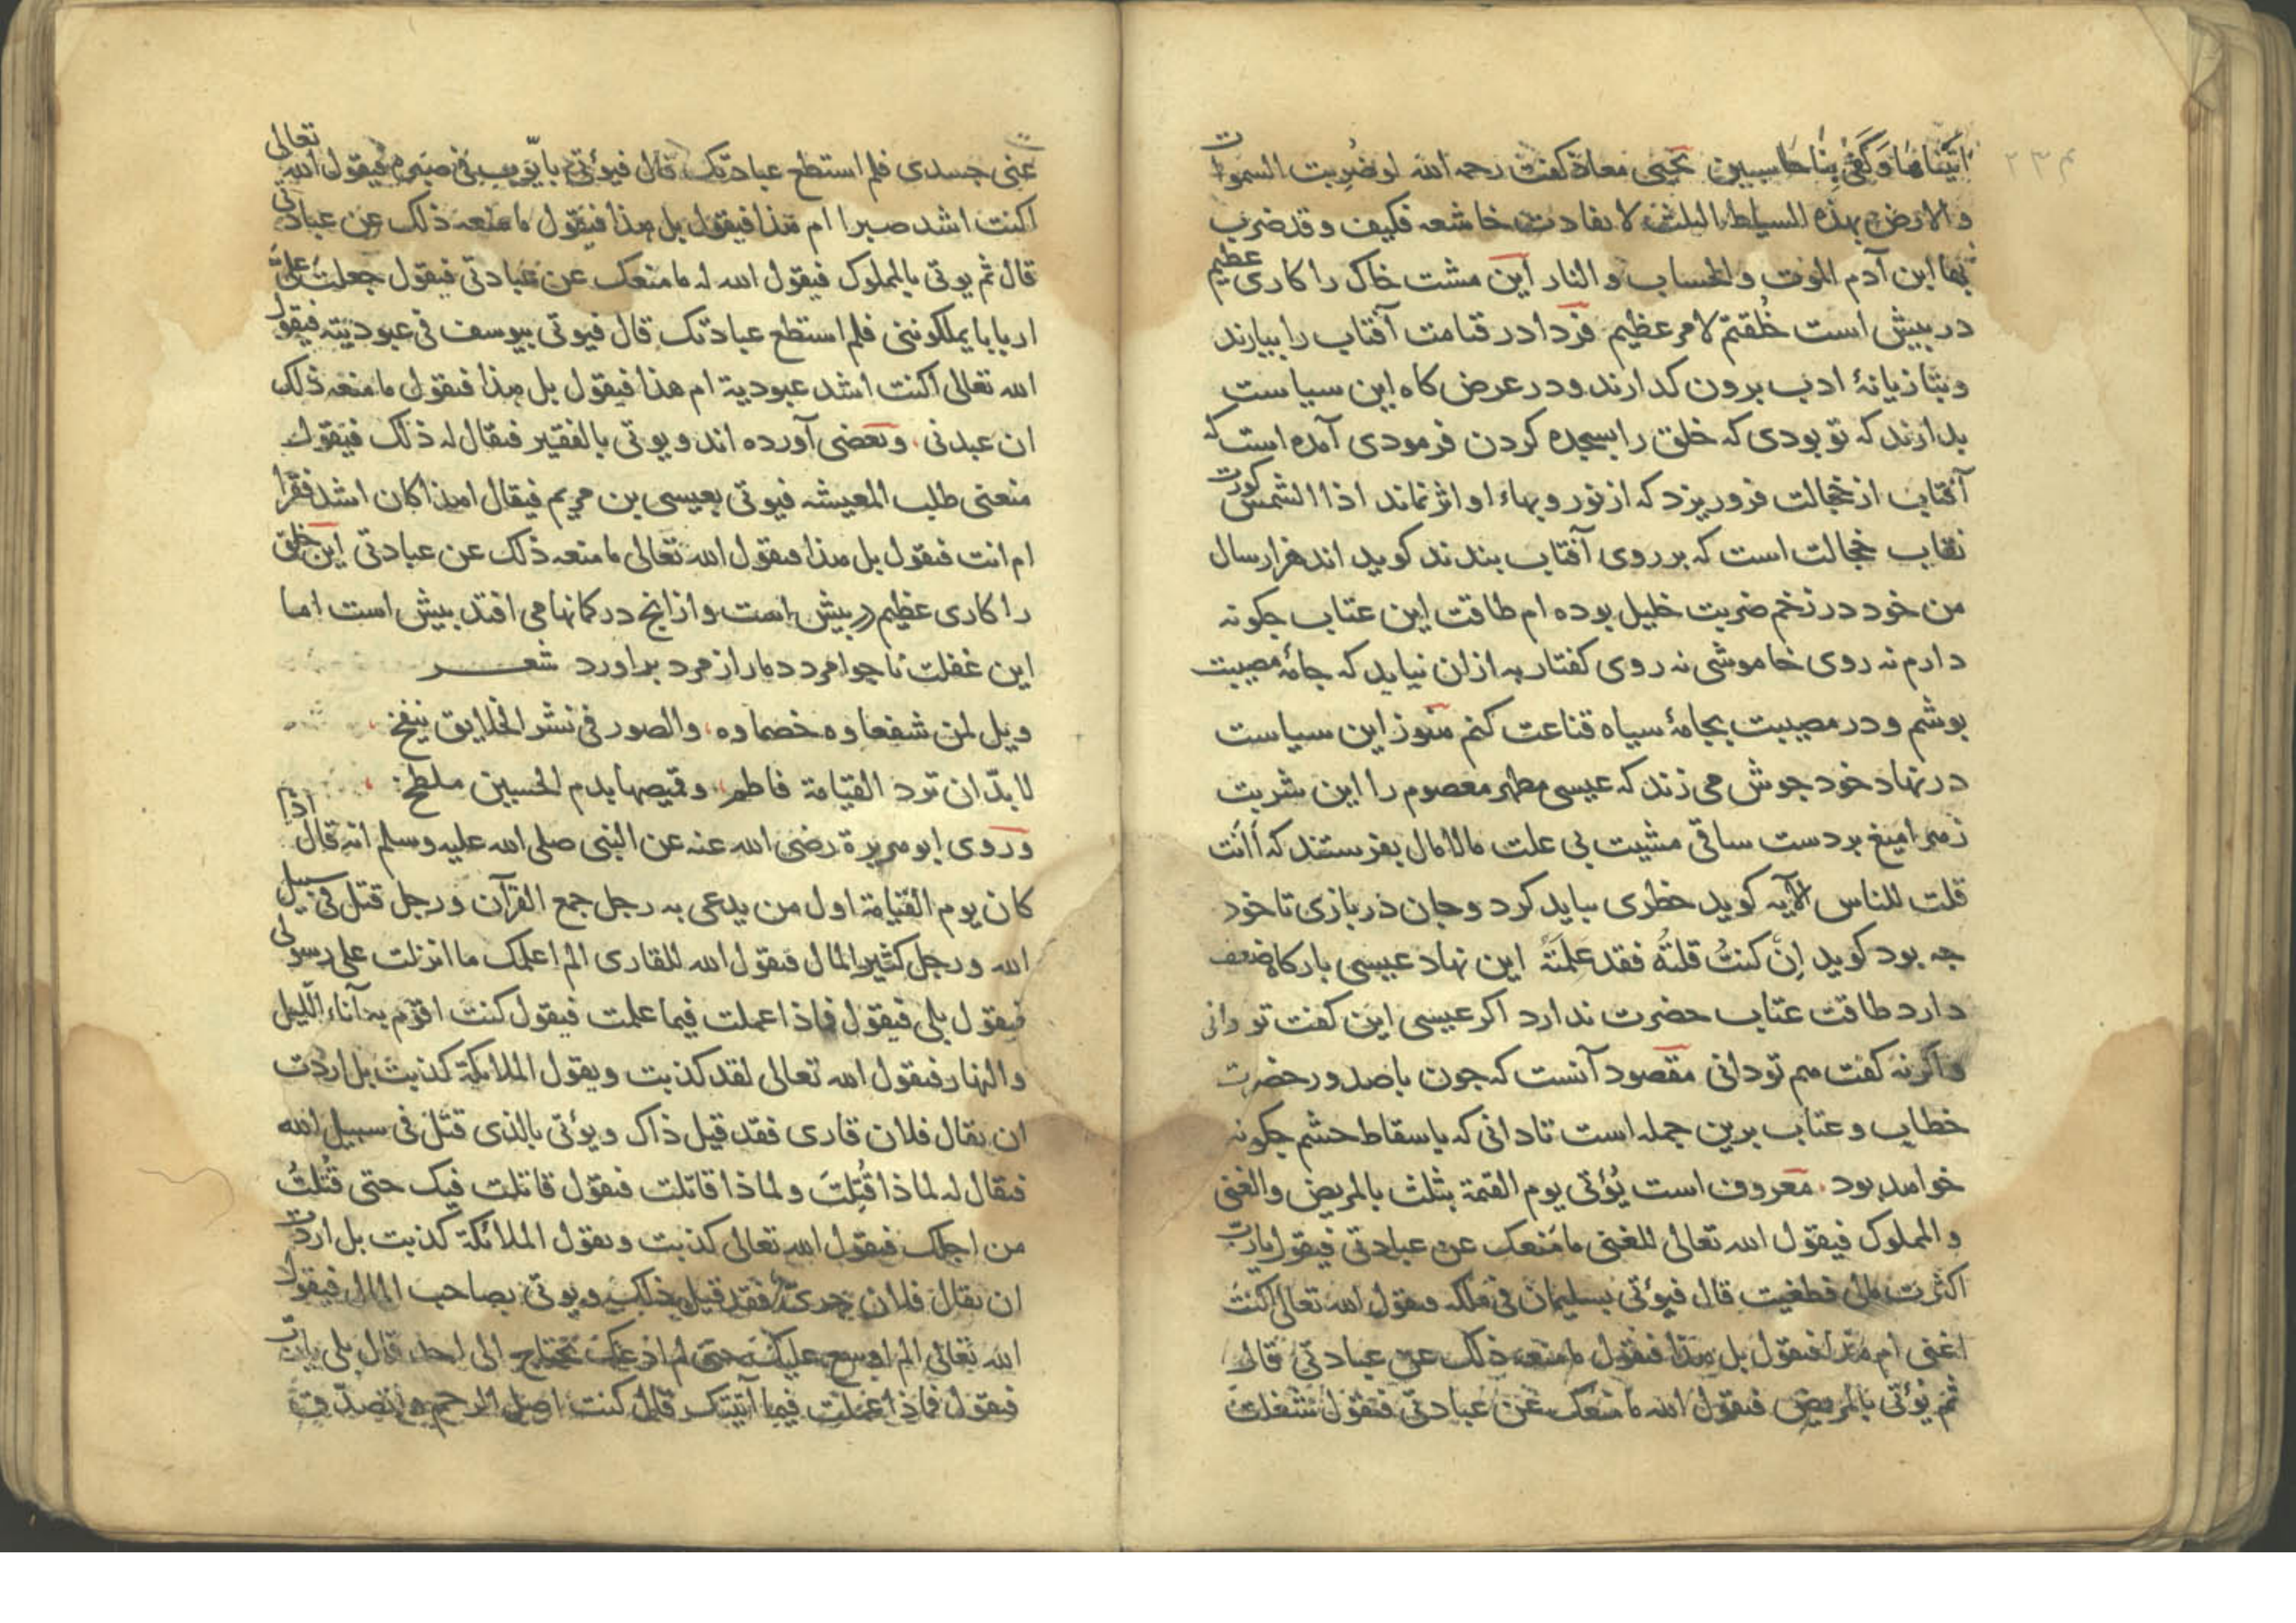 اتینا بها وکفی بنا حاسبین یحیی معاذ کفت رحمه الله لو ضُربت السموات
والارض بهذه السیاط الثلث لانقادت خاشعه فکیف وقد ضرب
بها ابن آدم الموت والحساب والنار این مشت خاک را کاری عظیم
در پیش است خُلقتم لامر عظیم فردا در قیامت آفتاب را بیارند
وبتازیانهٔ ادب برون کدارند ودر عرض کاه این سیاست
بدارند که تو بودی که خلق را بسجده کردن فرمودی آمده است که
آفتاب از خجالت فرو ریزد که از نور وبهاء او اثر نماند اذا الشمس کورت
نقاب خجالت است که بر روی آفتاب بندند کوید اند هزار سال
من خود در زخم ضربت خلیل بوده ام طاقت این عتاب چکونه
دارم نه روی خاموشی نه روی کفتار به ازان نیاید که جامهٔ مصیبت
بوشم و در مصیبت بجامهٔ سیاه قناعت کنم هنوز این سیاست
در نهاد خود جوش می زند که عیسی مطهر معصوم را این شربت
زهر امیغ بر دست ساقی مشیت بی علت مالامال بفرستند که أأنت
قلت للناس الآیه کوید خطری بباید کرد وجان در بازی تا خود
چه بود کوید اِن کنتُ قلتهُ فقد علمتَهُ این نهاد عیسی بارکاه ضعف
دارد طاقت عتاب حضرت ندارد اکر عیسی این کفت تو دانی
واکر نه کفت هم تو دانی مقصود آنست که چون با صدور حضرت
خطاب وعتاب برین جمله است تا دانی که با سقاط حشم چکونه
خواهد بود معروف است یُؤتی یوم القیمة بثلث بالمریض والغنی
والمملوک فیقول الله تعالی للغنی ما منعک عن عبادتی فیقول یارب
اکثرت مالی فطغیت قال فیؤتی بسلیمان فی ملکه فیقول الله تعالی أکنت
اغنی ام هذا فیقول بل هذا فیقول ما منعه ذلک عن عبادتی قال
ثم یؤتی بالمریض فیقول الله ما منعک عن عبادتی فیقول شغلت
عنی جسدی فلم استطع عبادتک قال فیؤتی بایّوب فی ضره فیقول الله تعالی
اکنت اشد صبرا ام هذا فیقول بل هذا فیقول ما منعه ذلک عن عبادتی
قال ثم یوتی بالمملوک فیقول الله له ما منعک عن عبادتی فیقول جعلت علیّ
اربابا یملکوننی فلم استطع عبادتک قال فیوتی بیوسف فی عبودیته فیقول
الله تعالی اکنت اشد عبودیة ام هذا فیقول بل هذا فیقول ما منعه ذلک
ان عبدنی وبعضی آورده اند ویوتی بالفقیر فیقال له ذلک فیقول
منعنی طلب المعیشه فیوتی بعیسی بن مریم فیقال اهذا کان اشد فقرا
ام انت فیقول بل هذا فیقول الله تعالی ما منعه ذلک عن عبادتی این خلق
را کاری عظیم در پیش است واز انچ در کمانها می افتد بیش است اما
این غفلت نا جوامرد دمار از مرد براورد شعر
ویل لمن شفعاوه خصماوه والصور فی نشر الخلایق ینفخ
لابدّ ان ترد القیامة فاطم وقمیصها بدم الحسین ملطخ
وروی ابو هریرة رضی الله عنه عن النبی صلی الله علیه وسلم انه قال اذا
کان یوم القیامة اول من یدعی به رجل جمع القرآن ورجل قتل فی سبیل
الله ورجل کثیر المال فیقول الله للقاری الم اعلمک ما انزلت علی رسولی
فیقول بلی فیقول فماذا عملت فیما علمت فیقول کنت اقوم به آناء اللّیل
والنهار فیقول الله تعالی لقد کذبت ویقول الملائکة کذبت بل اردت
ان یقال فلان قاری فقد قیل ذاک ویؤتی بالذی قتل فی سبیل الله
فیقال له لماذا قُتِلتَ ولماذا قاتلت فیقول قاتلت فیک حتی قُتلتُ
من اجلک فیقول الله تعالی کذبت ویقول الملائکة کذبت بل اردت
ان یقال فلان جریّ فقد قیل ذلک ویوتی بصاحب المال فیقول
الله تعالی الم اوسع علیک حتی لم ادعک تحتاج الی احد قال بلی یارب
فیقول فماذا عملت فیما آتیتک قال کنت اصل الرحم واتصدّق